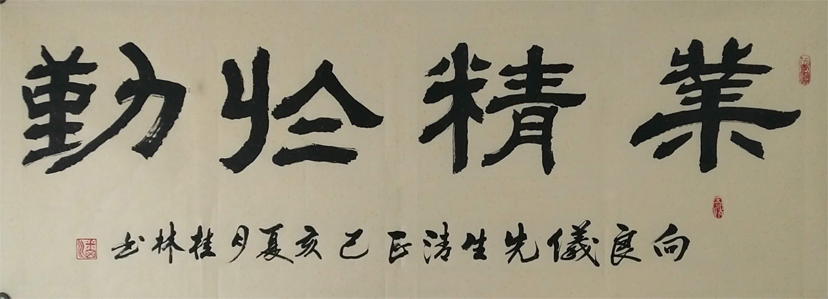 業精於勤
向良儀先生清正己亥夏月桂林书